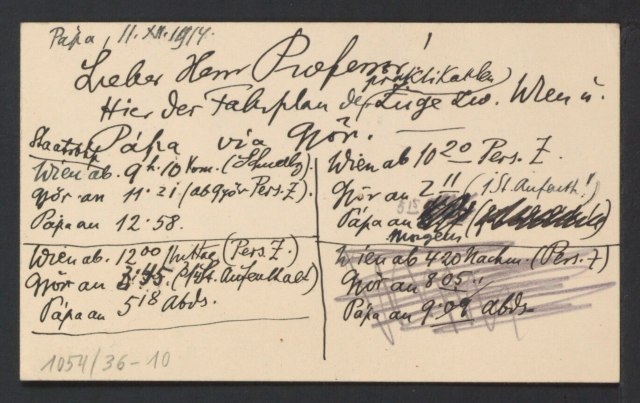 Pápa, 11. XII. 1914.
Lieber Herr Professor!
praktikablen
Hier der Fahrplan der Züge zw. Wien u.
Pápa via Györ.
Staatsbhf
Wien ab. 9h.10 Vorm. (Schnellz).
Györ an 11.21 (ab Györ Pers. Z).
Pápa an 12.58.
Wien ab 10 20 Pers. Z.
Györ an 2 11 (1 St. Aufenth!)
Pápa an
Morgens
Wien ab. 12 00 Mittag (Pers. Z.)
Györ an 3.45 (Aufenthalt)
Pápa an 5 18 Abds.
Wien ab 4 20 Nachm. (Pers. Z)
Györ an 8 05 "
Pápa an 9.09 Abds.
1054/36-10